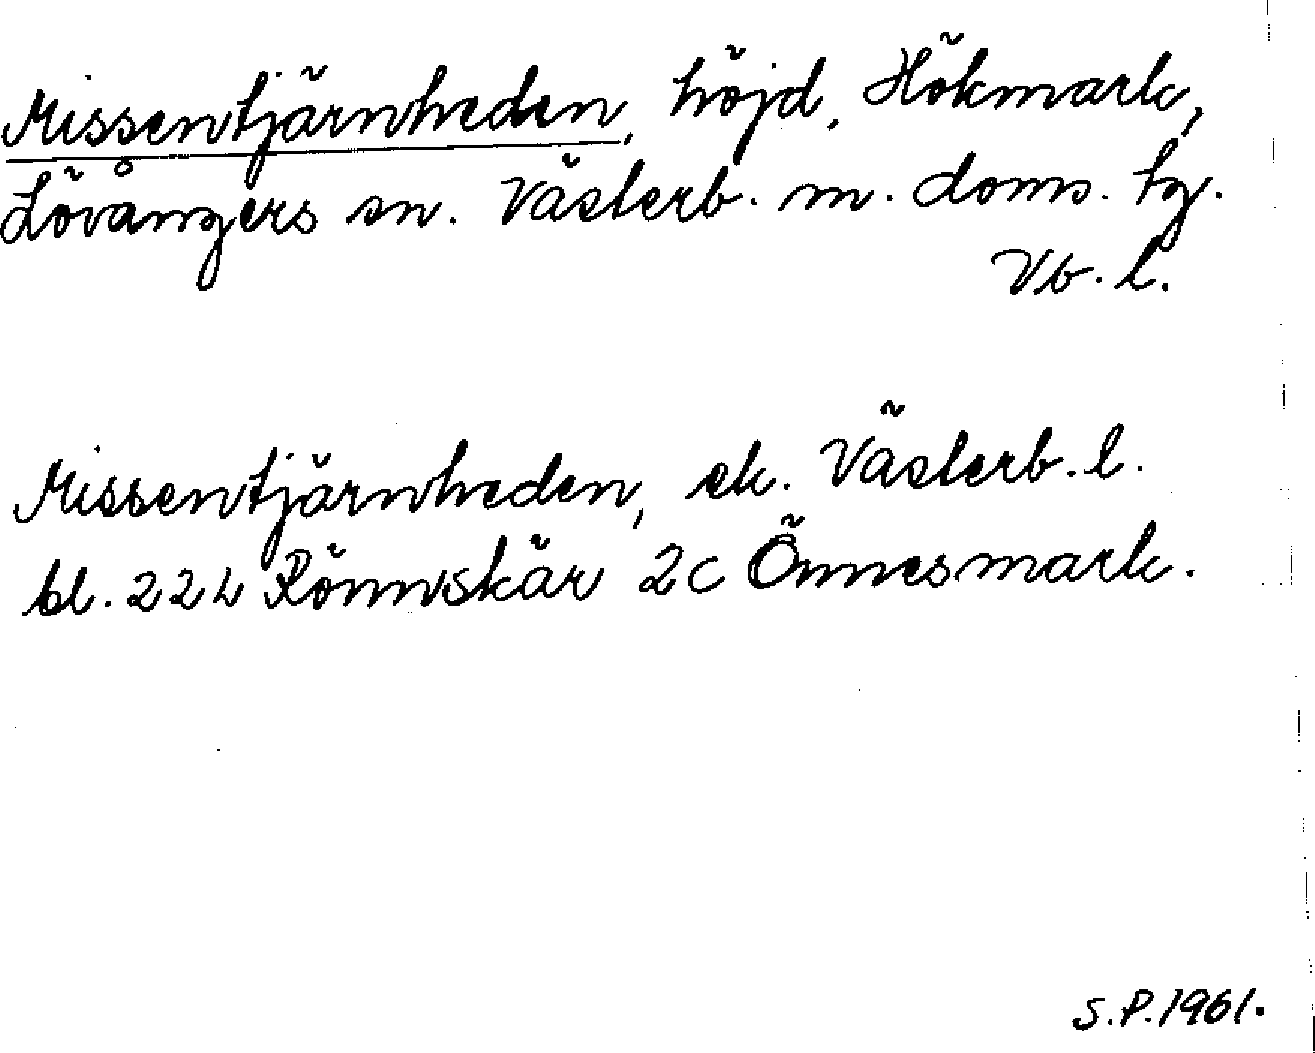 Missentjärnheden, höjd, Hökmark,
Lövångers sn. Västerb. m. doms. tg.
Vb. l.
Missentjärnheden, ek. Västerb. l.
bl. 22L Rönnskär 2c Önnesmark.
S.P. 1961.